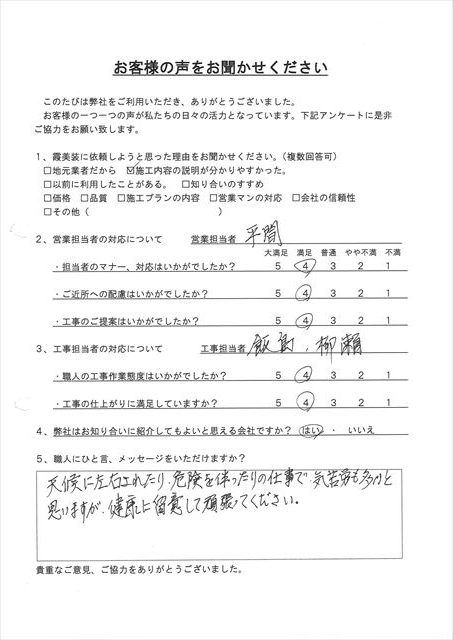 お客様の声をお聞かせください
このたびは弊社をご利用いただき、ありがとうございました。
お客様の一つ一つの声が私たちの日々の活力となっています。下記アンケートに是非
ご協力をお願い致します。
1、霞美装に依頼しようと思った理由をお聞かせください。（複数回答可）
□地元業者だから ☑施工内容の説明が分かりやすかった。
□以前に利用したことがある。 □知り合いのすすめ
□価格 □品質 □施工プランの内容 □営業マンの対応 □会社の信頼性
□その他（ ）
2、営業担当者の対応について 営業担当者 平間
大満足 満足 普通 やや不満 不満
・担当者のマナー、対応はいかがでしたか？ 5 4 3 2 1
・ご近所への配慮はいかがでしたか？ 5 4 3 2 1
・工事のご提案はいかがでしたか？ 5 4 3 2 1
3、工事担当者の対応について 工事担当者 飯島、柳瀬
・職人の工事作業態度はいかがでしたか？ 5 4 3 2 1
・工事の仕上がりに満足していますか？ 5 4 3 2 1
4、弊社はお知り合いに紹介してもよいと思える会社ですか？ はい ・ いいえ
5、職人にひと言、メッセージをいただけますか？
天候に左右されたり、危険を伴ったりの仕事で気苦労も多かと
思いますが、健康に留意して頑張ってください。
貴重なご意見、ご協力をありがとうございました。